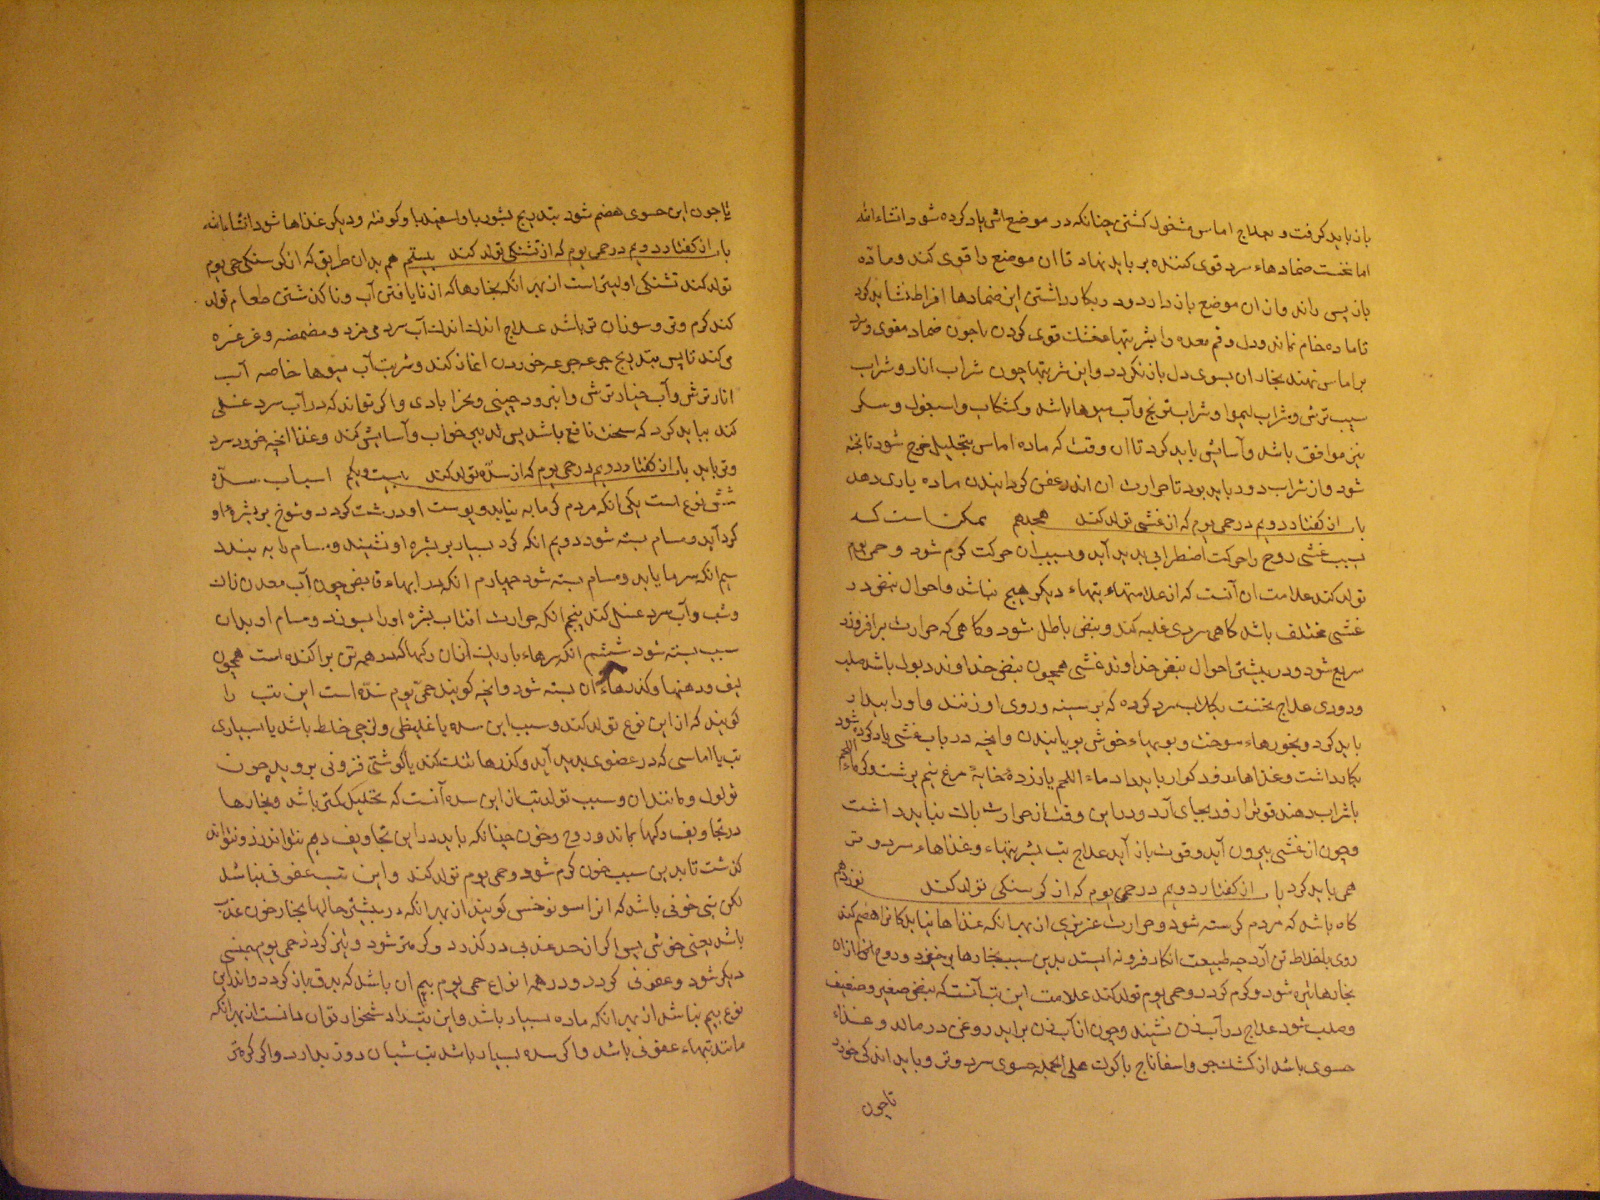 باز باید گرفت و بعلاج اماس مشغول گشتن چنانکه در موضع اش یاد کرده شود انشاء الله
اما نخست ضمادهاء سرد قوی کننده بر باید نهاد تا ان موضع را قوی کند و ماده
باز پس راند و از ان موضع باز دارد و در بکار داشتن این ضمادها افراط نشاید کرد
تا ماده خام نماند و دل و فم معده را بشربتهاء خنک قوی کردن تا چون ضماد مقوی و سرد
بر اماس نهند بخار ان بسوی دل باز نکردد و این شربتها چون شراب انار و شراب
سیب ترش و شراب لیمو و شراب ترنج و آب میوها باشد و کشکاب و اسبغول و سکر
نیز موافق باشد و آسایش باید کرد تا ان وقت که ماده اماس بتحلیل خرج شود تا پخته
شود و از شراب دور باید بود تا حرارت ان اندر عفن کردانیدن ماده یاری ندهد
باب از کفتار دویم در حمی یوم که از غشی تولد کند هجدهم ممکن است که
بسبب غشی روح را حرکت اضطرابی پدید آید و بسبب ان حرکت کرم شود و حمی یوم
تولد کند علامت ان آنست که از علامتهاء تبهاء دیکر هیچ نباشد و احوال نبض در
غشی مختلف باشد کاهی سردی غلبه کند و نبض باطل شود و کاهی که حرارت بر افروزد
سریع شود و در بیشتر احوال نبض خداوند غشی همچون نبض خداوند ذبول باشد صلب
و دوری علاج نخست بکلاب سرد کرده که بر سینه و روی او زنند و او را بیدار
باید کرد و بخورهاء سوخت و بویهاء خوش بویانیدن و انچه در باب غشی یاد کرده شود
بکار داشت و غذاها زود کوار باید داد ماء اللحم یا زرده خایهٔ مرغ نیم برشت و کر ماء اللحم
با شراب دهند قوت را زود بجای آرد و در این وقت از حرارت باک نباید داشت
و چون از غشی بیرون آید و قوت باز آید علاج تب بشربتهاء و غذاهاء سرد و تر
همی باید کرد باب از کفتار دویم در حمی یوم که از کرسنکی تولد کند نوزدهم
کاه باشد که مردم کرسنه شود و حرارت غریزی از بهر انکه غذاها نیابد کانرا هضم کند
روی باخلاط تن آرد چه طبیعت از کار فرو نه ایستد بدین سبب بخارها بر خیزد و روح از ان
بخارها تیره شود و کرم کردد و حمی یوم تولد کند علامت این تب آنست که نبض صغیر و ضعیف
و صلب شود علاج در آب زن نشیند و چون از آب زن بر اید روغن در مالد و غذاء
حسوی باشد از کشک جو و اسفاناخ یا کوک علی الجمله حسوی سرد و تر و باید اندکی خورد
تا چون
تا چون این حسوی هضم شود بتدریج بشوربا و اسفیدبا و کوفته و دیکر غذاها شود انشاء الله
باب از کفتار دویم در حمی یوم که از تشنکی تولد کند بیستم هم بدان طریق که از کرسنکی حمی یوم
تولد کند تشنکی اولیتر است از بهر انکه بخارها که از نایافتن آب و ناکذشتن طعام تولد
کند کرم و تر و سوزان تر باشد علاج اندک اندک آب سرد می مزد و مضمضه و غرغره
می کند تا پس بتدریج جرعه جرعه خوردن اغاز کند و شربت آب میوها خاصه آب
انار ترش و آب خیار ترش و انبرود چینی و بخرا بادی و اکر تواند که در آب سرد غسلی
کند بباید کرد که سخت نافع باشد پس تدبیر خواب و آسایش کند و غذا انچه خورد سرد
و تر باید باب از کفتار دویم در حمی یوم که از سدّه تولد کند بیست و یکم اسباب سدّه
شش نوع است یکی انکه مردم کرمابه نیابد و پوست او درشت کردد و شوخ بر بشرهٔ او
کرد آید و مسام بسته شود دویم انکه کرد بسیار بر بشره او نشیند و مسام را به بندد
سیم انکه سرما یابد و مسام بسته شود چهارم انکه در ابهاء قابض چون آب معدن زاک
و شب و آب سرد غسل کند پنجم انکه حرارت افتاب بشره او را بسوزد و مسام او بدان
سبب بسته شود ششم انکه سرهاء باریک از ان رکها که در همه تن پراکنده است همچون
لیف و دهنها و کذرهاء ان بسته شود و انچه کویند حمی یوم سدّه است این تب را
کویند که از این نوع تولد کند و سبب این سده یا غلیظی و لزجی خلط باشد یا بسیاری
تب یا اماسی که در عضوی پدید آید و کذرها تنک کند یا کوشتی فزونی بروید چون
ثولول و مانند ان و سبب تولد تب از این سده آنست که تحلیل کمتر باشد و بخارها
در تجاویف رکها بماند و روح و خون چنانکه باید در این تجاویف دم نتواند زد و نتواند
کذشت تا بدین سبب خون کرم شود و حمی یوم تولد کند و این تب عفونی نباشد
لکن تبی خونی باشد که انرا سونوخس کویند از بهر انکه در بیشتر حالها بخار خون عذب
باشد یعنی خوش پس اکر از حد عذبی در کذرد و کرمتر شود و تیز کردد حمی یوم بجنسی
دیکر شود و عفونی کردد و در همه انواع حمی یوم بیم ان باشد که بدق باز کردد و اندر این
نوع بیم نباشد از بهر انکه ماده بسیار باشد و این تب را دشخوار توان دانست از بهر انکه
مانند تبهاء عفونی باشد و اکر سده بسیار باشد تب شبان روز بدارد و اکر کمتر